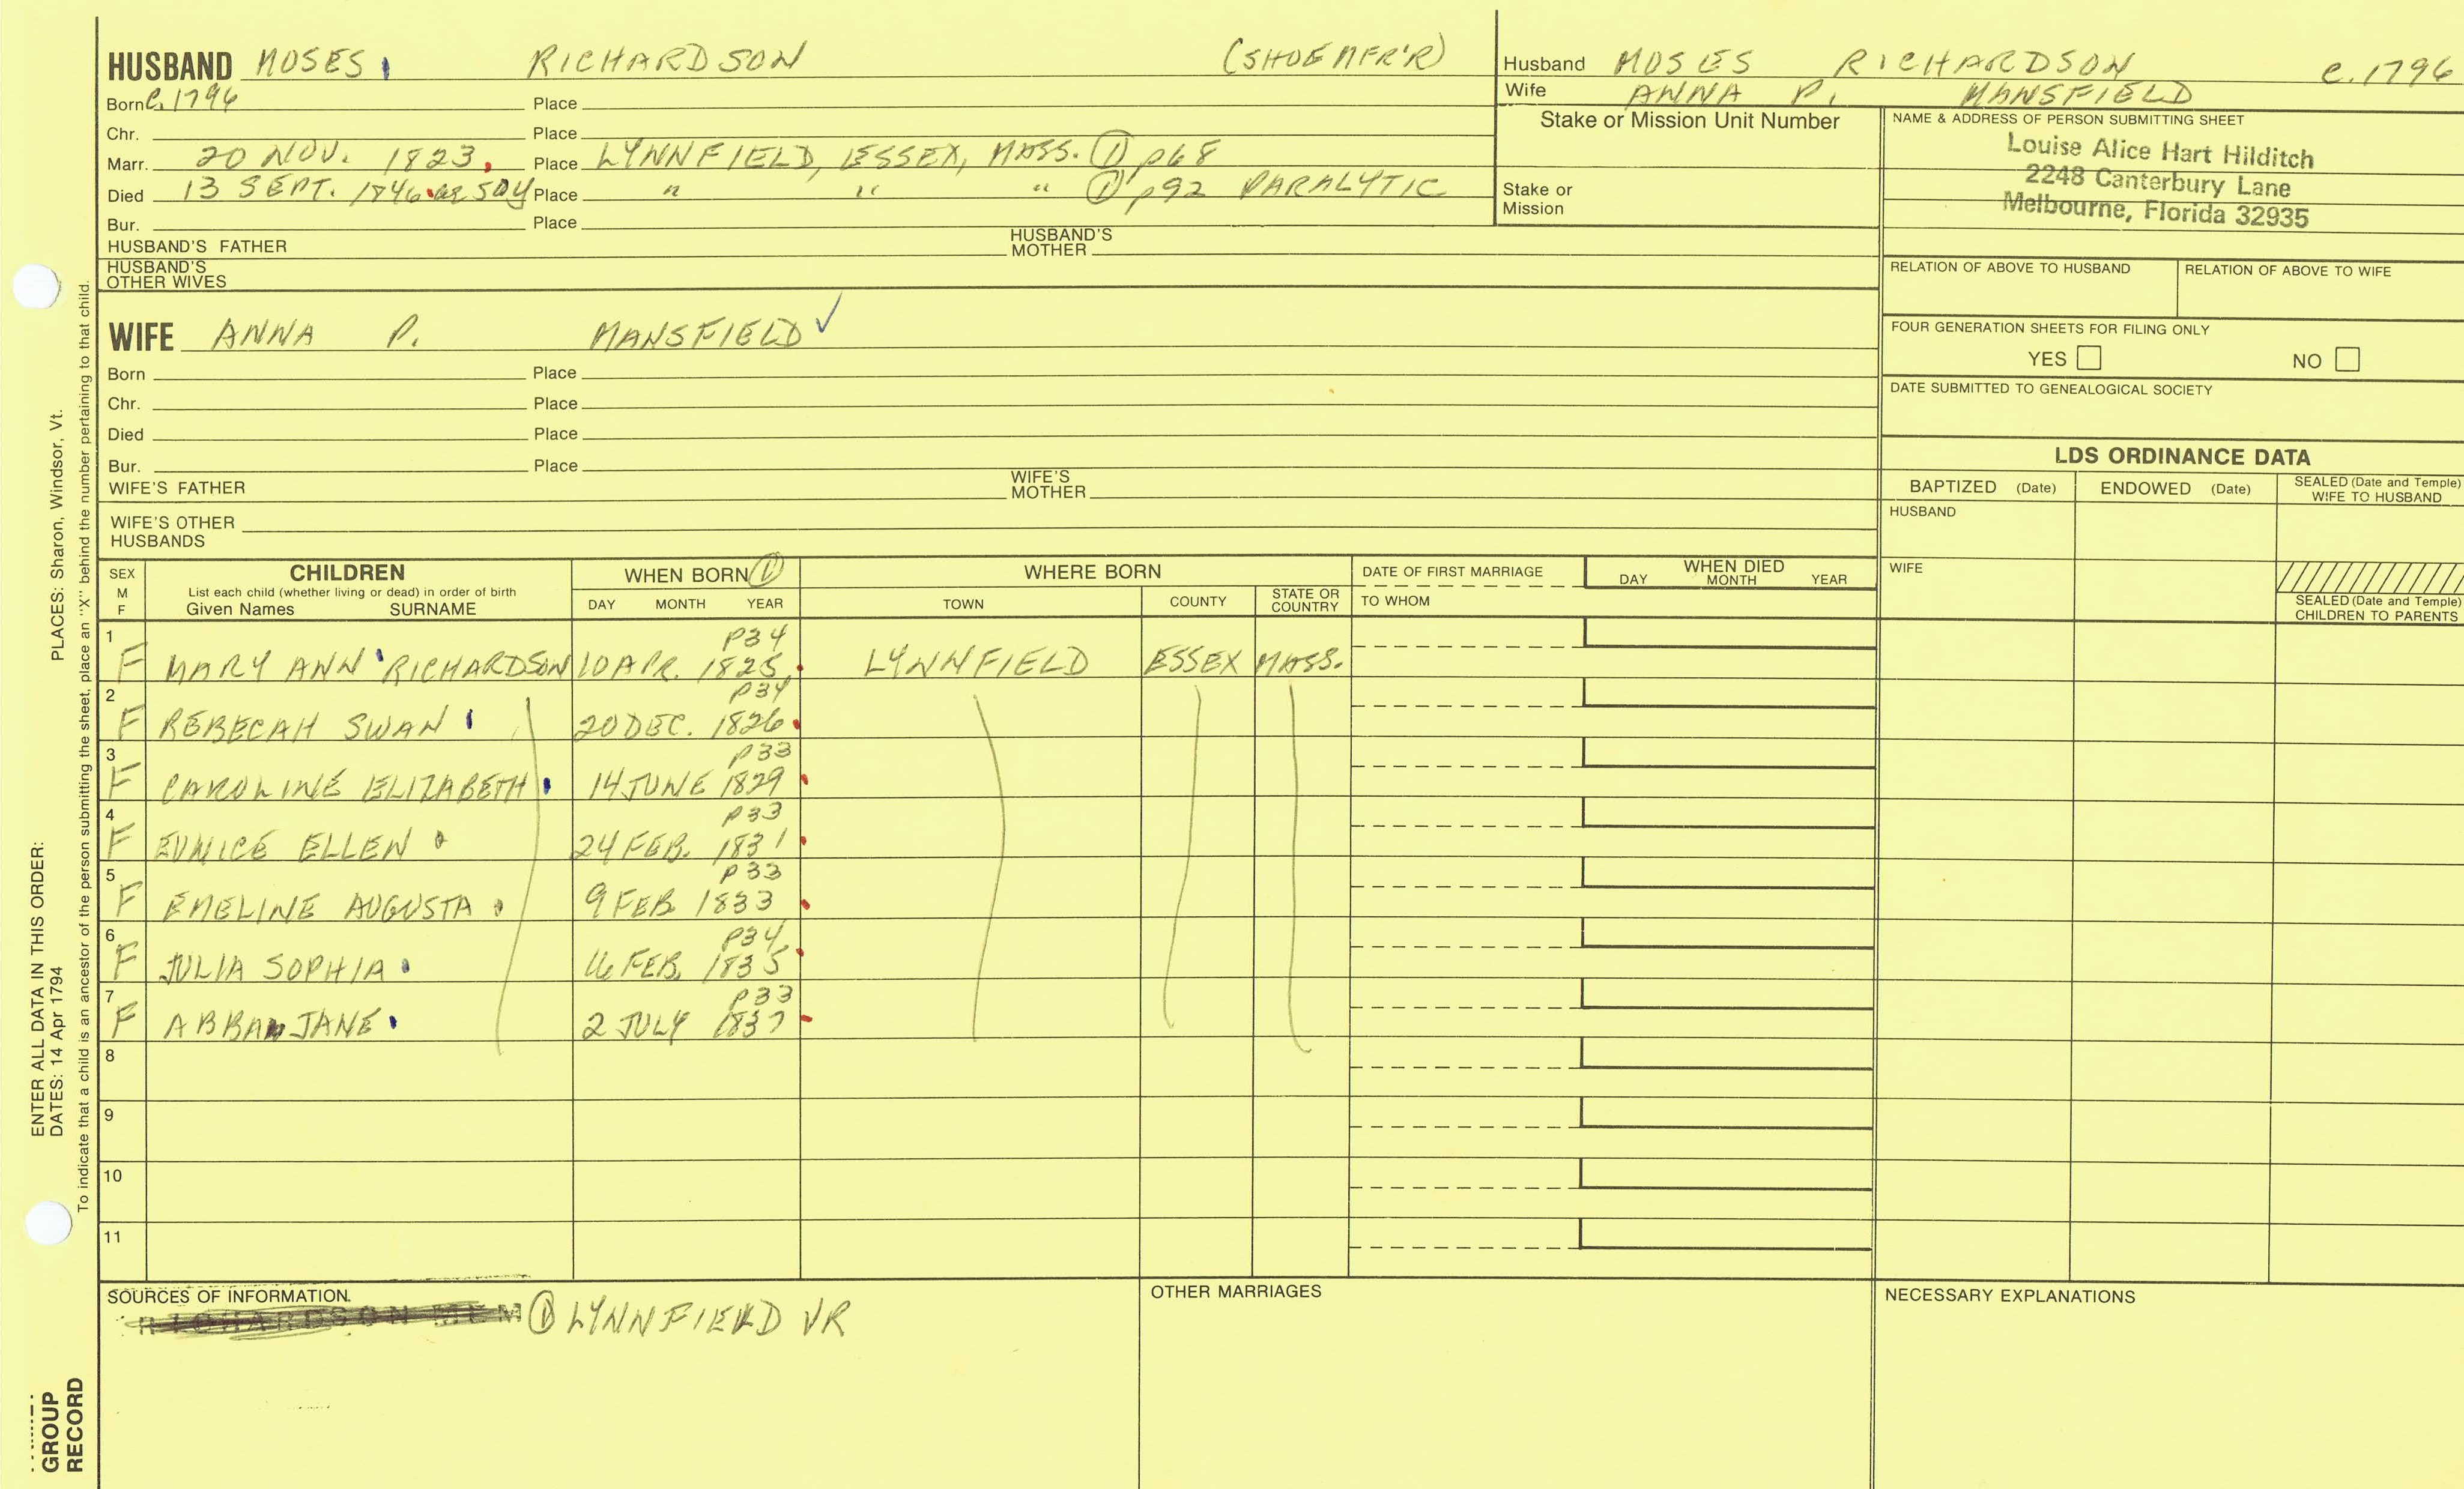 HUSBAND MOSES RICHARDSON (SHOE MFR'R)
Born C. 1796 Place
Chr. Place
Marr. 20 NOV. 1823. Place LYNNFIELD, ESSEX, MASS. ① p68
Died 13 SEPT. 1846. ae 50y Place " " " ① p92 PARALYTIC
Bur. Place
HUSBAND'S FATHER HUSBAND'S MOTHER
HUSBAND'S OTHER WIVES
Husband MOSES RICHARDSON c. 1796
Wife ANNA P. MANSFIELD
Stake or Mission Unit Number
Stake or Mission
NAME & ADDRESS OF PERSON SUBMITTING SHEET
Louise Alice Hart Hilditch
2248 Canterbury Lane
Melbourne, Florida 32935
RELATION OF ABOVE TO HUSBAND RELATION OF ABOVE TO WIFE
FOUR GENERATION SHEETS FOR FILING ONLY
YES NO
DATE SUBMITTED TO GENEALOGICAL SOCIETY
WIFE ANNA P. MANSFIELD ✓
Born Place
Chr. Place
Died Place
Bur. Place
WIFE'S FATHER WIFE'S MOTHER
WIFE'S OTHER HUSBANDS
LDS ORDINANCE DATA
BAPTIZED (Date) ENDOWED (Date) SEALED (Date and Temple) WIFE TO HUSBAND
HUSBAND
WIFE
SEALED (Date and Temple) CHILDREN TO PARENTS
SEX M F CHILDREN List each child (whether living or dead) in order of birth Given Names SURNAME
WHEN BORN ① DAY MONTH YEAR
WHERE BORN TOWN COUNTY STATE OR COUNTRY
DATE OF FIRST MARRIAGE TO WHOM
WHEN DIED DAY MONTH YEAR
1 F MARY ANN RICHARDSON 10 APR. 1825. P34 LYNNFIELD ESSEX MASS.
2 F REBECAH SWAN 20 DEC. 1826. P34
3 F CAROLINE ELIZABETH 14 JUNE 1829 P33
4 F EUNICE ELLEN 24 FEB. 1831 P33
5 F EMELINE AUGUSTA 9 FEB 1833 P33
6 F JULIA SOPHIA 16 FEB. 1835 P34
7 F ABBAH JANE 2 JULY 1837 P33
8
9
10
11
SOURCES OF INFORMATION
RICHARDSON MEM ① LYNNFIELD VR
OTHER MARRIAGES
NECESSARY EXPLANATIONS
ENTER ALL DATA IN THIS ORDER:
DATES: 14 Apr 1794 PLACES: Sharon, Windsor, Vt.
To indicate that a child is an ancestor of the person submitting the sheet, place an "X" behind the number pertaining to that child.
GROUP
RECORD